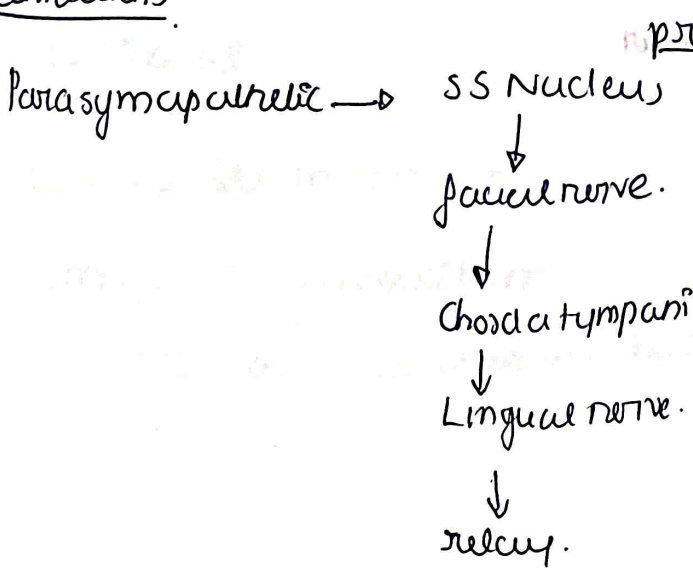 pr
Parasymapathetic → SS Nucleus
↓
facial nerve.
↓
Chorda tympani
↓
Lingual nerve.
↓
relay.